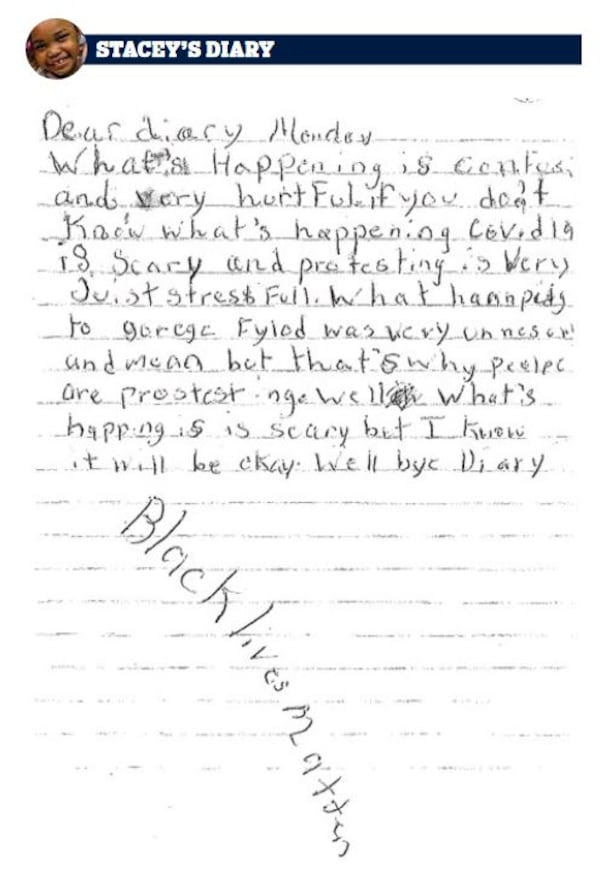 STACEY'S DIARY
Dear diary Monday
What's Happening is
and very hurtFul. if you don't
Know what's happening Covid19
is Scary and protesting is Very
stressFull. What
to gorege Fylod was very
and mean but that's why
are What's
is is scary but I know
it will be okay. Well bye Diary
Black lives Matter